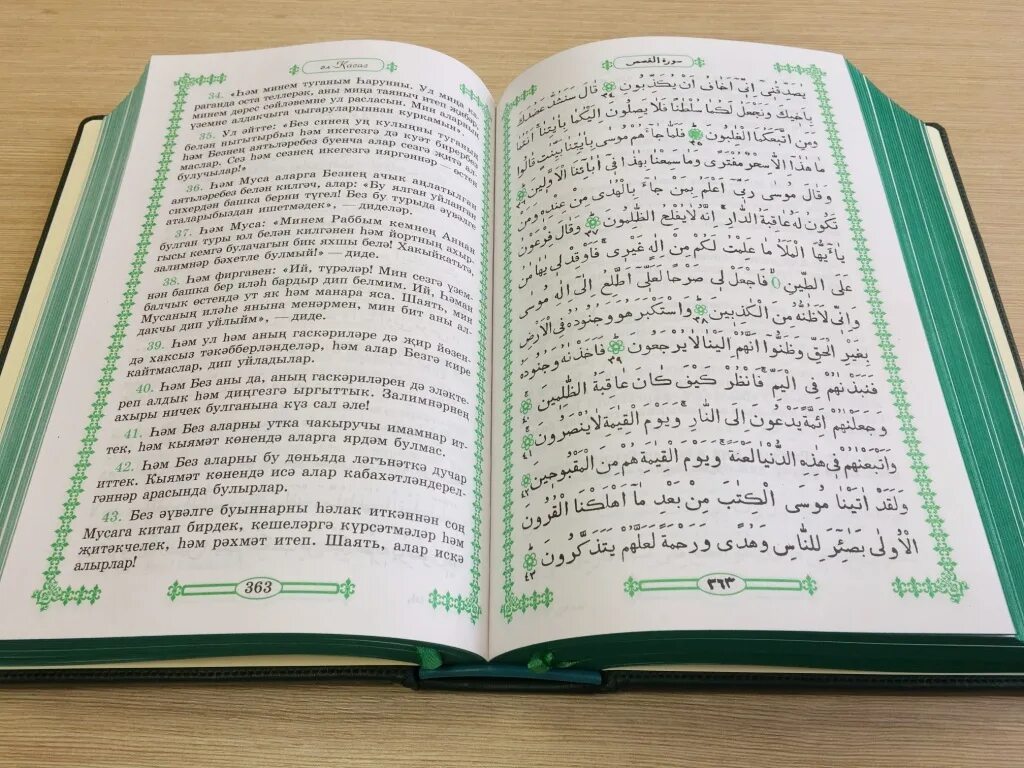 әл-Касас
34. «Һәм минем туганым Һарунны. Ул миңа ка-
раганда оста теллерәк, аны миңа таяныч итеп җибәр,
минем дөрес сөйләвемне ул расласын. Мин аларның
үземне алдакчыга чыгаруларыннан куркамын».
35. Ул әйтте: «Без синең уң кулыңны туганың
белән ныгытырбыз һәм икегезгә дә куәт бирербез
һәм Безнең аятьләребез буенча алар сезгә җитә ал-
маслар. Сез һәм сезнең икегезгә ияргәннәр — өстен
булучылар!»
36. Һәм Муса аларга Безнең ачык аңлатылган
аятьләребез белән килгәч, алар: «Бу ялган уйланган
сихердән башка берни түгел! Без бу турыда әүвәлге
аталарыбыздан ишетмәдек», — диделәр.
37. Һәм Муса: «Минем Раббым кемнең Аннан
булган туры юл белән килгәнен һәм йортның ахыр-
гысы кемгә булачагын бик яхшы белә! Хакыйкатьтә,
залимнәр бәхетле булмый!» — диде.
38. Һәм фиргавен: «Ий, түрәләр! Мин сезгә үзем-
нән башка бер иләһ бардыр дип белмим. Ий, Һаман
балчык өстендә ут як һәм манара яса. Шаять, мин
Мусаның иләһе янына менәрмен, мин бит аны ал-
дакчы дип уйлыйм», — диде.
39. Һәм ул һәм аның гаскәриләре дә җир йөзен-
дә хаксыз тәкәбберләнделәр, һәм алар Безгә кире
кайтмаслар, дип уйладылар.
40. Һәм Без аны да, аның гаскәриләрен дә эләкте-
реп алдык һәм диңгезгә ыргыттык. Залимнәрнең
ахыры ничек булганына күз сал әле!
41. Һәм Без аларны утка чакыручы имамнар ит-
тек, һәм кыямәт көнендә аларга ярдәм булмас.
42. Һәм Без аларны бу дөньяда ләгънәткә дучар
иттек. Кыямәт көнендә исә алар кабахәтләндерел-
гәннәр арасында булырлар.
43. Без әүвәлге буыннарны һәлак иткәннән соң
Мусага китап бирдек, кешеләргә күрсәтмәләр һәм
җитәкчелек, һәм рәхмәт итеп. Шаять, алар искә
алырлар!
363
سورة القصص
يُصَدِّقُنِي إِنِّي أَخَافُ أَنْ يُكَذِّبُونِ ٣٤ قَالَ سَنَشُدُّ عَضُدَكَ
بِأَخِيكَ وَنَجْعَلُ لَكُمَا سُلْطَانًا فَلَا يَصِلُونَ إِلَيْكُمَا بِآيَاتِنَا أَنْتُمَا
وَمَنِ اتَّبَعَكُمَا الْغَالِبُونَ ٣٥ فَلَمَّا جَاءَهُمْ مُوسَى بِآيَاتِنَا بَيِّنَاتٍ قَالُوا
مَا هٰذَا إِلَّا سِحْرٌ مُفْتَرًى وَمَا سَمِعْنَا بِهٰذَا فِي آبَائِنَا الْأَوَّلِينَ ٣٦
وَقَالَ مُوسَى رَبِّي أَعْلَمُ بِمَنْ جَاءَ بِالْهُدَى مِنْ عِنْدِهِ وَمَنْ
تَكُونُ لَهُ عَاقِبَةُ الدَّارِ إِنَّهُ لَا يُفْلِحُ الظَّالِمُونَ ٣٧ وَقَالَ فِرْعَوْنُ
يَا أَيُّهَا الْمَلَأُ مَا عَلِمْتُ لَكُمْ مِنْ إِلٰهٍ غَيْرِي فَأَوْقِدْ لِي يَا هَامَانُ
عَلَى الطِّينِ فَاجْعَلْ لِي صَرْحًا لَعَلِّي أَطَّلِعُ إِلَى إِلٰهِ مُوسَى
وَإِنِّي لَأَظُنُّهُ مِنَ الْكَاذِبِينَ ٣٨ وَاسْتَكْبَرَ هُوَ وَجُنُودُهُ فِي الْأَرْضِ
بِغَيْرِ الْحَقِّ وَظَنُّوا أَنَّهُمْ إِلَيْنَا لَا يُرْجَعُونَ ٣٩ فَأَخَذْنَاهُ وَجُنُودَهُ
فَنَبَذْنَاهُمْ فِي الْيَمِّ فَانْظُرْ كَيْفَ كَانَ عَاقِبَةُ الظَّالِمِينَ ٤٠
وَجَعَلْنَاهُمْ أَئِمَّةً يَدْعُونَ إِلَى النَّارِ وَيَوْمَ الْقِيٰمَةِ لَا يُنْصَرُونَ ٤١
وَأَتْبَعْنَاهُمْ فِي هٰذِهِ الدُّنْيَا لَعْنَةً وَيَوْمَ الْقِيٰمَةِ هُمْ مِنَ الْمَقْبُوحِينَ ٤٢
وَلَقَدْ آتَيْنَا مُوسَى الْكِتَابَ مِنْ بَعْدِ مَا أَهْلَكْنَا الْقُرُونَ
الْأُولَى بَصَائِرَ لِلنَّاسِ وَهُدًى وَرَحْمَةً لَعَلَّهُمْ يَتَذَكَّرُونَ ٤٣
٣٦٣